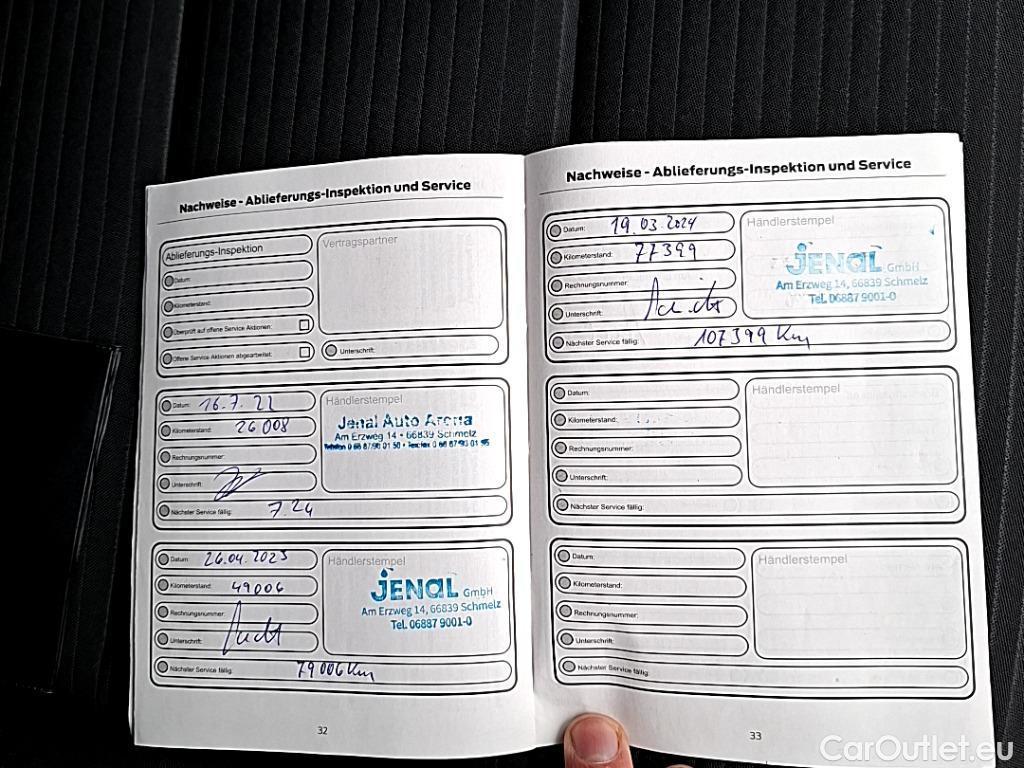 Nachweise - Ablieferungs-Inspektion und Service
Ablieferungs-Inspektion
Datum:
Kilometerstand:
Überprüft auf offene Service Aktionen:
Offene Service Aktionen abgearbeitet:
Vertragspartner
Unterschrift:
Datum: 16.7.22
Kilometerstand: 26008
Rechnungsnummer:
Unterschrift:
Nächster Service fällig: 7.24
Händlerstempel
Jenal Auto Arena
Am Erzweg 14 • 66839 Schmelz
Datum: 26.04.2023
Kilometerstand: 49006
Rechnungsnummer:
Unterschrift:
Nächster Service fällig: 79006 Km
Händlerstempel
JENAL GmbH
Am Erzweg 14, 66839 Schmelz
Tel. 06887 9001-0
32
Nachweise - Ablieferungs-Inspektion und Service
Datum: 19.03.2024
Kilometerstand: 77399
Rechnungsnummer:
Unterschrift:
Nächster Service fällig: 107399 Km
Händlerstempel
JENAL GmbH
Am Erzweg 14, 66839 Schmelz
Tel. 06887 9001-0
Datum:
Kilometerstand:
Rechnungsnummer:
Unterschrift:
Nächster Service fällig:
Händlerstempel
Datum:
Kilometerstand:
Rechnungsnummer:
Unterschrift:
Nächster Service fällig:
Händlerstempel
33
CarOutlet.eu